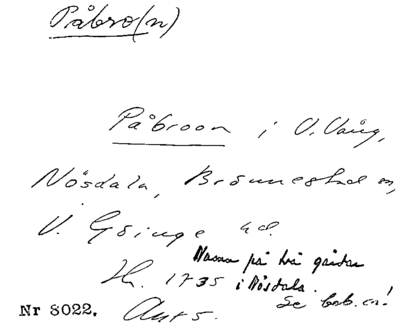 Påbro(n)
Påbroon i V. Vång,
Nösdala, Brönnestad sn,
V. Göinge hd.
Namn på två gårdar
Hr. 1735 i Nösdala.
Se bob. en!
Nr 8022. Ant 5.